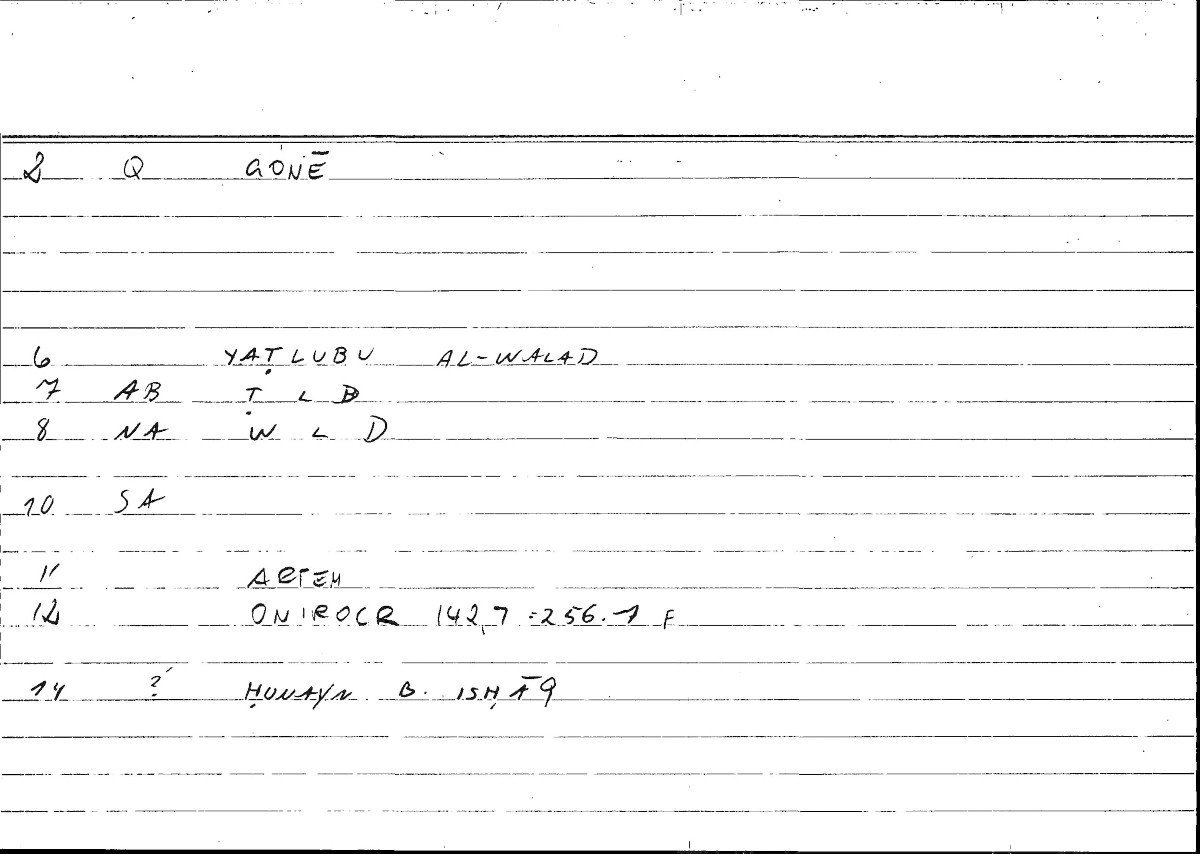 2 Q GŌNĒ
6 YAṬLUBU AL-WALAD
7 AB Ṭ L B
8 NA W L D
10 SA
11 ARTEM
12 ONIROCR 142,7 = 256.1 F
14 ? ḤUNAYN B. ISḤĀQ